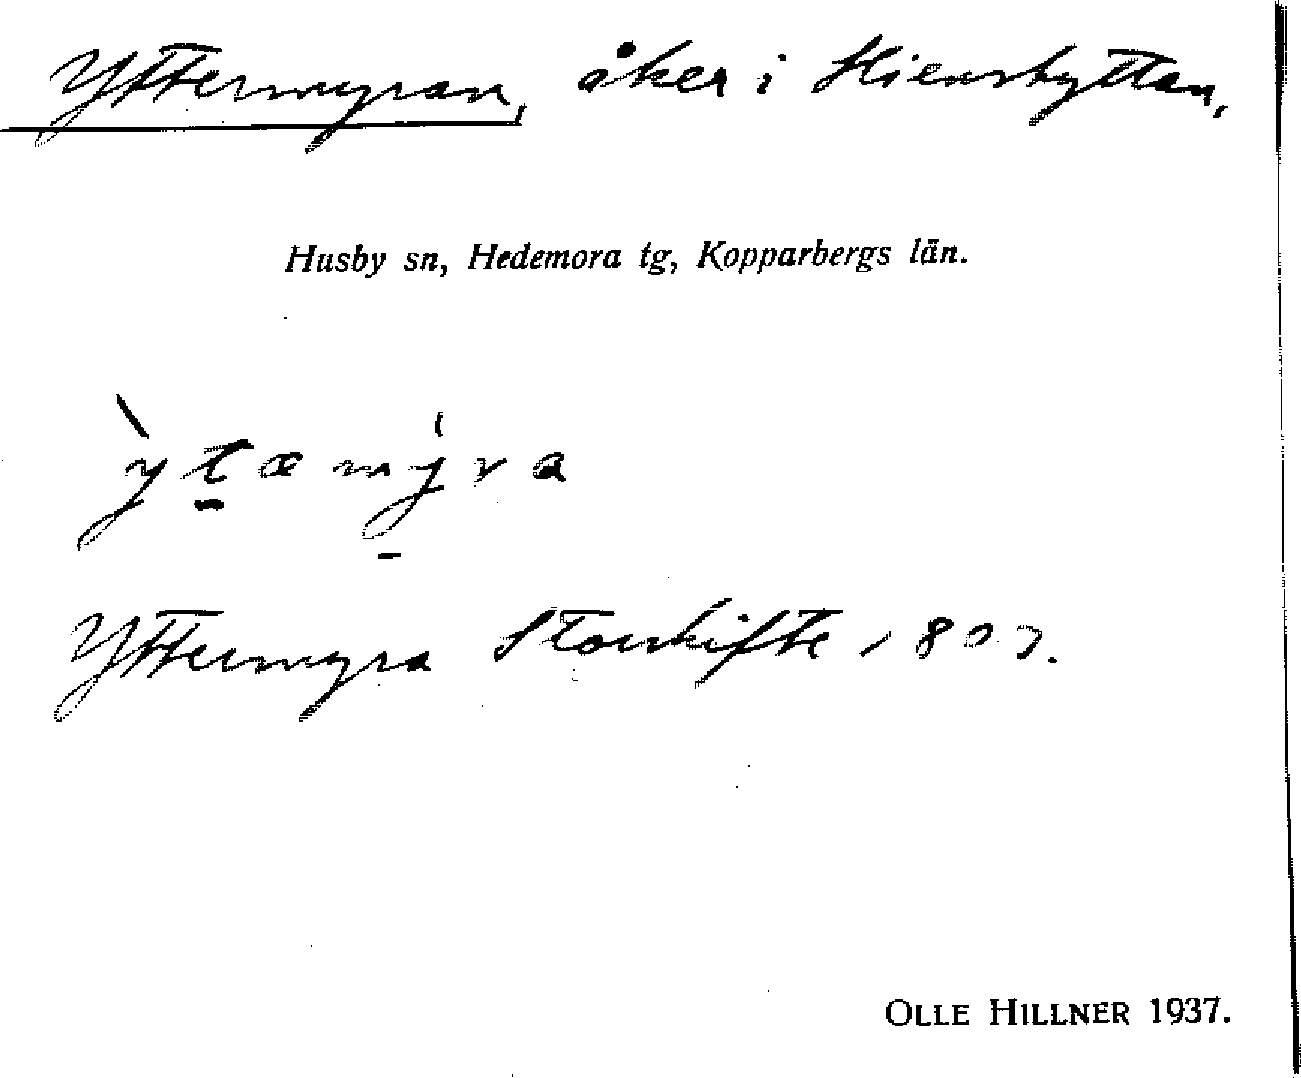 Yttermyran, åker i Hienshyttan,
Husby sn, Hedemora tg, Kopparbergs län.
ỳt̲æmý̲ra
Yttermyra Storskifte 1807.
OLLE HILLNER 1937.